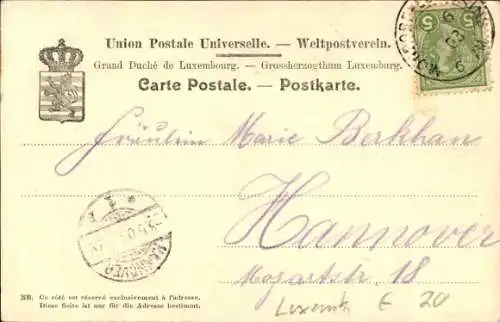 Union Postale Universelle. — Weltpostverein.
Grand Duché de Luxembourg. — Grossherzogthum Luxemburg.
Carte Postale. — Postkarte.
5 5
Fräulein Marie Berkhan
Hannover
Mozartstr. 18
HANNOVER
NB. Ce côté est réservé exclusivement à l'adresse.
Diese Seite ist nur für die Adresse bestimmt.
Luxemb € 20